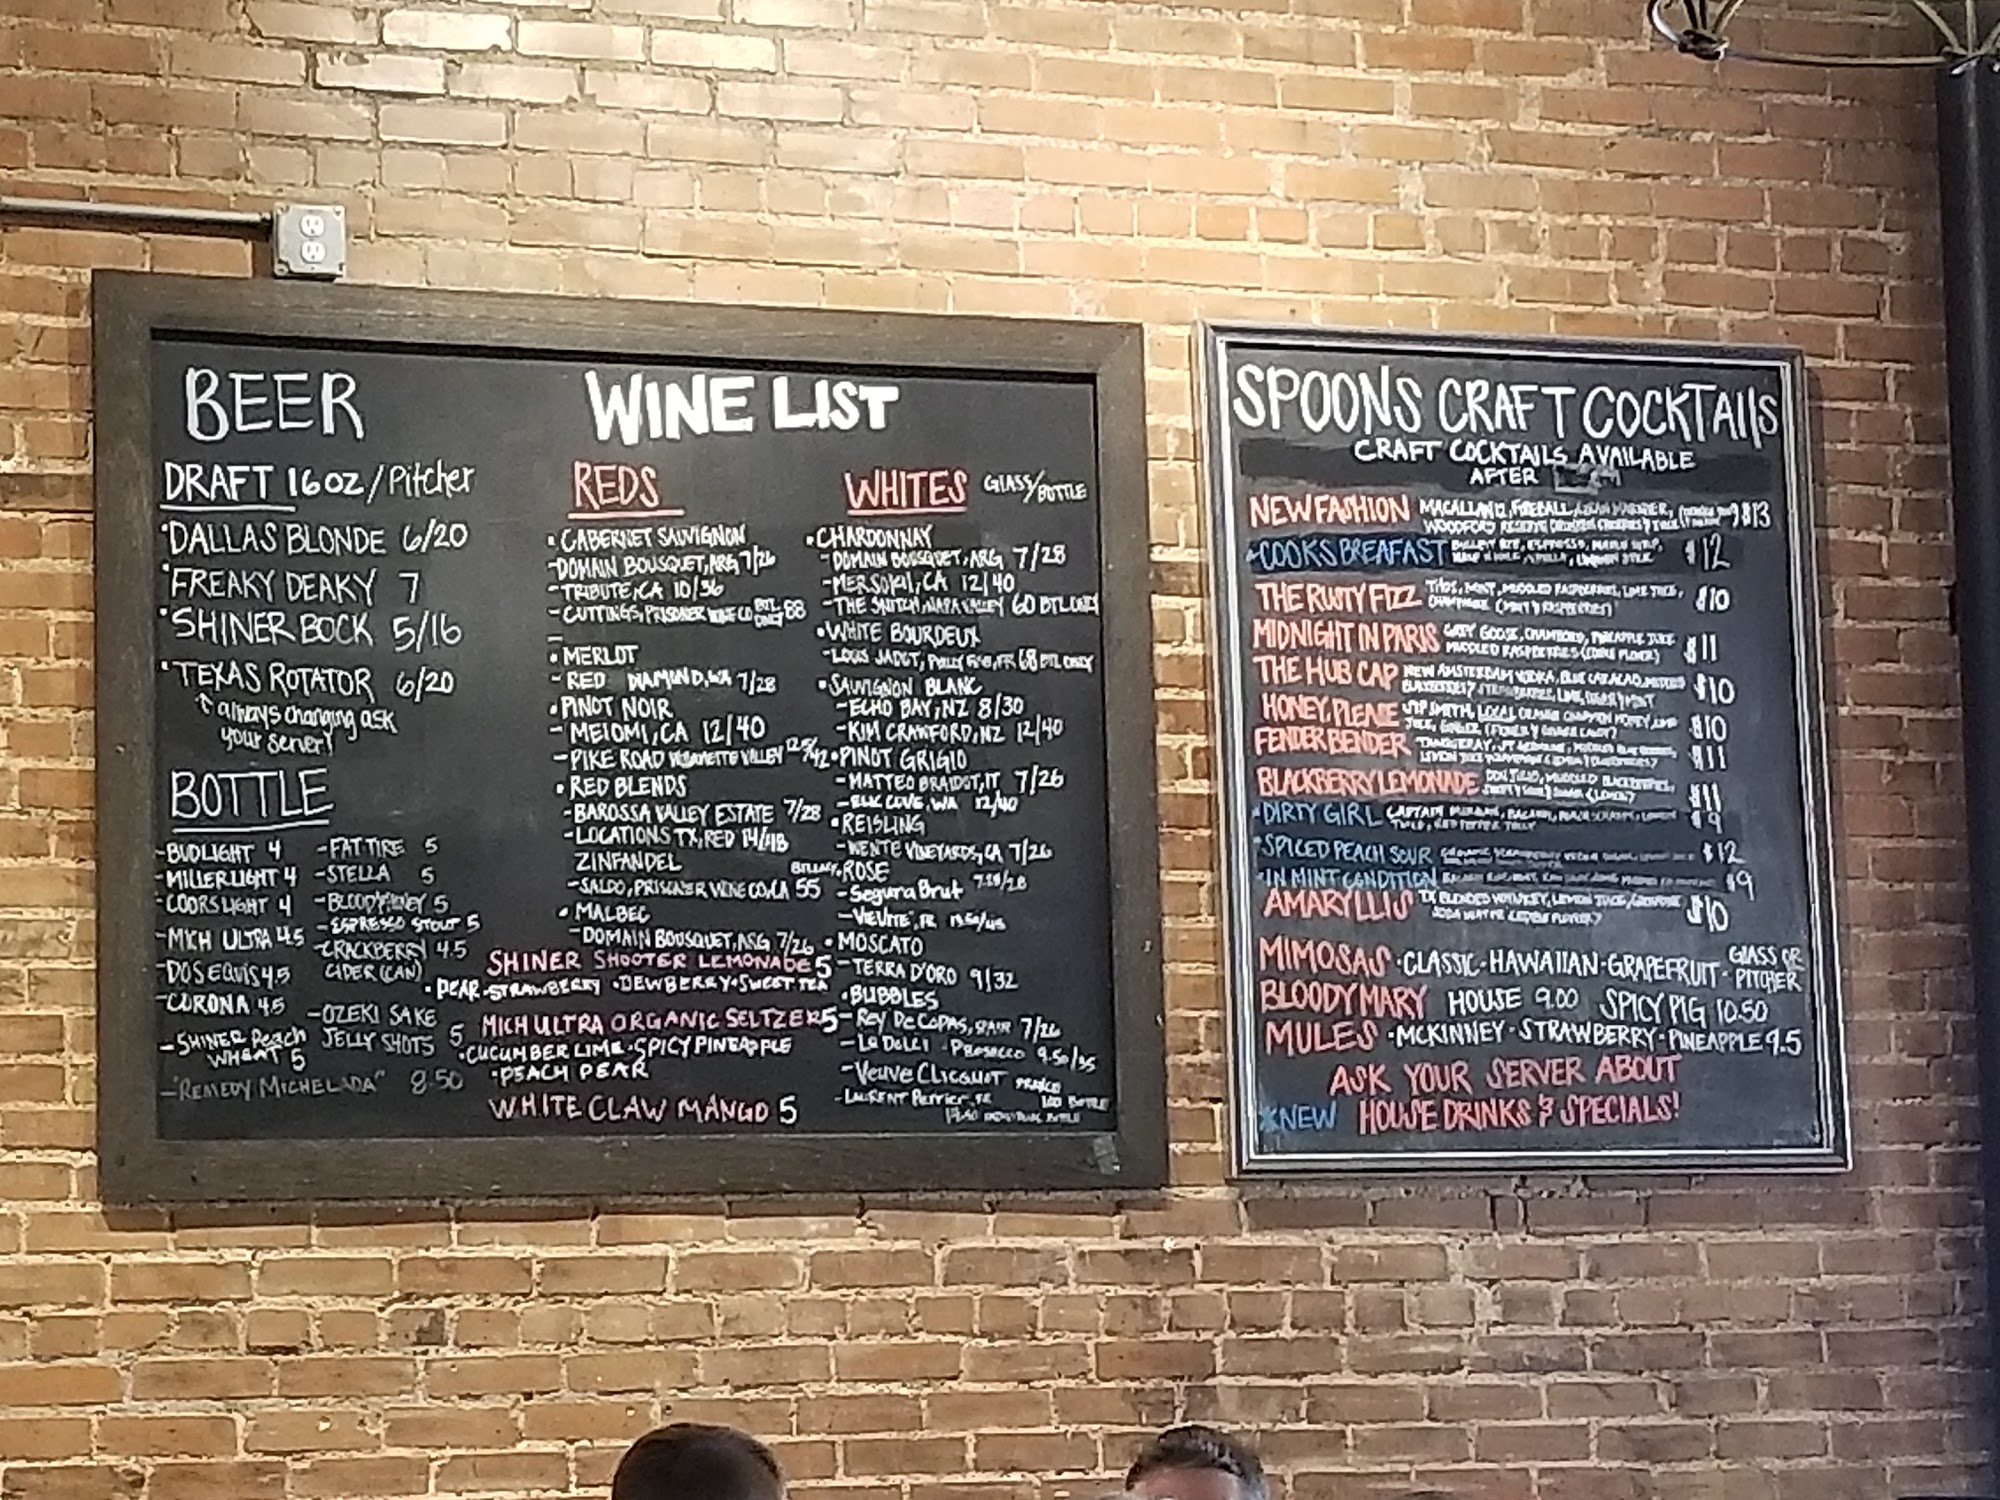 BEER
DRAFT 16OZ/Pitcher
•DALLAS BLONDE 6/20
•FREAKY DEAKY 7
•SHINER BOCK 5/16
•TEXAS ROTATOR 6/20
always changing ask
your server!
BOTTLE
-BUDLIGHT 4
-MILLERLIGHT 4
-COORS LIGHT 4
-MICH ULTRA 4.5
-DOS EQUIS 4.5
-CORONA 4.5
-SHINER Peach
WHEAT 5
-"REMEDY MICHELADA" 8.50
-FAT TIRE 5
-STELLA 5
5
-ESPRESSO STOUT 5
-CRACKBERRY 4.5
CIDER (CAN)
-OZEKI SAKE
JELLY SHOTS 5
WINE LIST
REDS
•CABERNET SAUVIGNON
-DOMAIN BOUSQUET, ARG 7/26
-TRIBUTE, CA 10/36
-CUTTINGS, PRISONER WINE CO BTL ONLY 88
-
•MERLOT
-RED DIAMOND, WA 7/28
•PINOT NOIR
-MEIOMI, CA 12/40
-PIKE ROAD VALLEY
•RED BLENDS
-BAROSSA VALLEY ESTATE 7/28
-LOCATIONS TX, RED 14/48
ZINFANDEL
-SALDO, PRISONER WINE CO, CA 55
•MALBEC
-DOMAIN BOUSQUET, ARG 7/26
SHINER SHOOTER LEMONADE 5
•PEAR •STRAWBERRY •DEWBERRY •SWEET TEA
MICH ULTRA ORGANIC SELTZER 5
•CUCUMBER LIME •SPICY PINEAPPLE
•PEACH PEAR
WHITE CLAW MANGO 5
WHITES GLASS/BOTTLE
•CHARDONNAY
-DOMAIN BOUSQUET, ARG 7/28
-MERSOLIL, CA 12/40
-THE SNITCH, NAPA VALLEY 60 BTL ONLY
•WHITE BOURDEUX
-LOUIS JADOT, FR 68 BTL ONLY
•SAUVIGNON BLANC
-ECHO BAY, NZ 8/30
-KIM CRAWFORD, NZ 12/40
•PINOT GRIGIO
-MATTEO BRAIDOT, IT 7/26
-ELK COVE, WA 12/40
•REISLING
-WENTE VINEYARDS, CA 7/26
ROSE
-Segura Brut
-VIEVITE, FR
•MOSCATO
-TERRA D'ORO 9/32
•BUBBLES
-Rey De Copas, SPAIN 7/26
PROSECCO 9.50/35
-Veuve Clicquot
-LAURENT PERRIER, FR
SPOONS CRAFT COCKTAIlS
CRAFT COCKTAILS AVAILABLE
AFTER
NEW FASHION MACALLAN 12, FIREBALL $13
WOODFORD RESERVE
•COOKS BREAFAST BULLEIT RYE, ESPRESSO, MAPLE SYRUP, $12
THE RUSTY FIZZ TITOS, MINT, MUDDLED RASPBERRIES, LIME JUICE, $10
CHAMPAGNE (MINT & RASPBERRIES)
MIDNIGHT IN PARIS GREY GOOSE, CHAMBORD, PINEAPPLE JUICE $11
MUDDLED RASPBERRIES (EDIBLE FLOWER)
THE HUB CAP NEW AMSTERDAM VODKA, BLUE CURACAO, MUDDLED $10
HONEY, PLEASE SIPSMITH, LOCAL HONEY, LIME $10
FENDER BENDER TANQUERAY, ST GERMAINE, $11
BLACKBERRY LEMONADE DON JULIO, MUDDLED BLACKBERRIES, $11
•DIRTY GIRL CAPTAIN MORGAN, BACARDI, PEACH SCHNAPPS, $9
•SPICED PEACH SOUR $12
•IN MINT CONDITION $9
AMARYLLIS TX BLENDED WHISKEY, LEMON JUICE, GRENADINE $10
SODA WATER (EDIBLE FLOWER)
MIMOSAS •CLASSIC •HAWAIIAN •GRAPEFRUIT • GLASS OR PITCHER
BLOODY MARY HOUSE 9.00 SPICY PIG 10.50
MULES •MCKINNEY •STRAWBERRY •PINEAPPLE 9.5
ASK YOUR SERVER ABOUT
*NEW HOUSE DRINKS & SPECIALS!